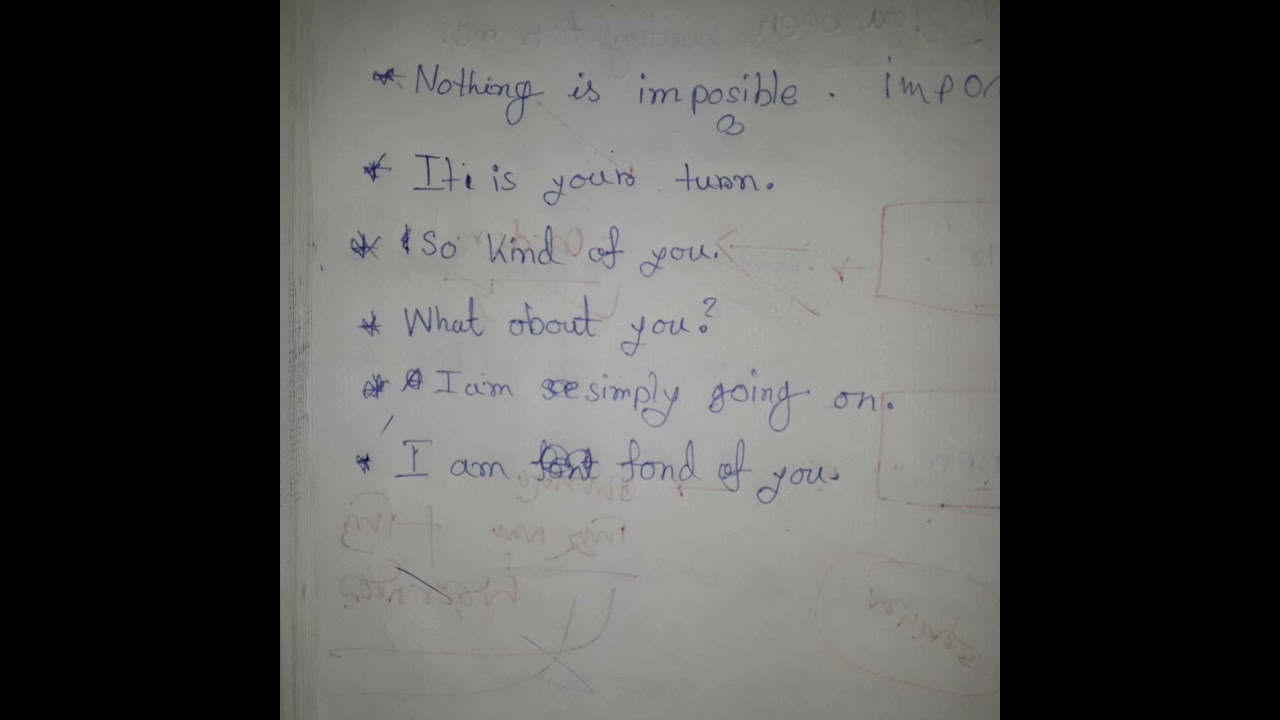 * Nothing is imposible. impor
* It is your turn.
* So kind of you.
* What about you?
* I am simply going on.
* I am fond of you.